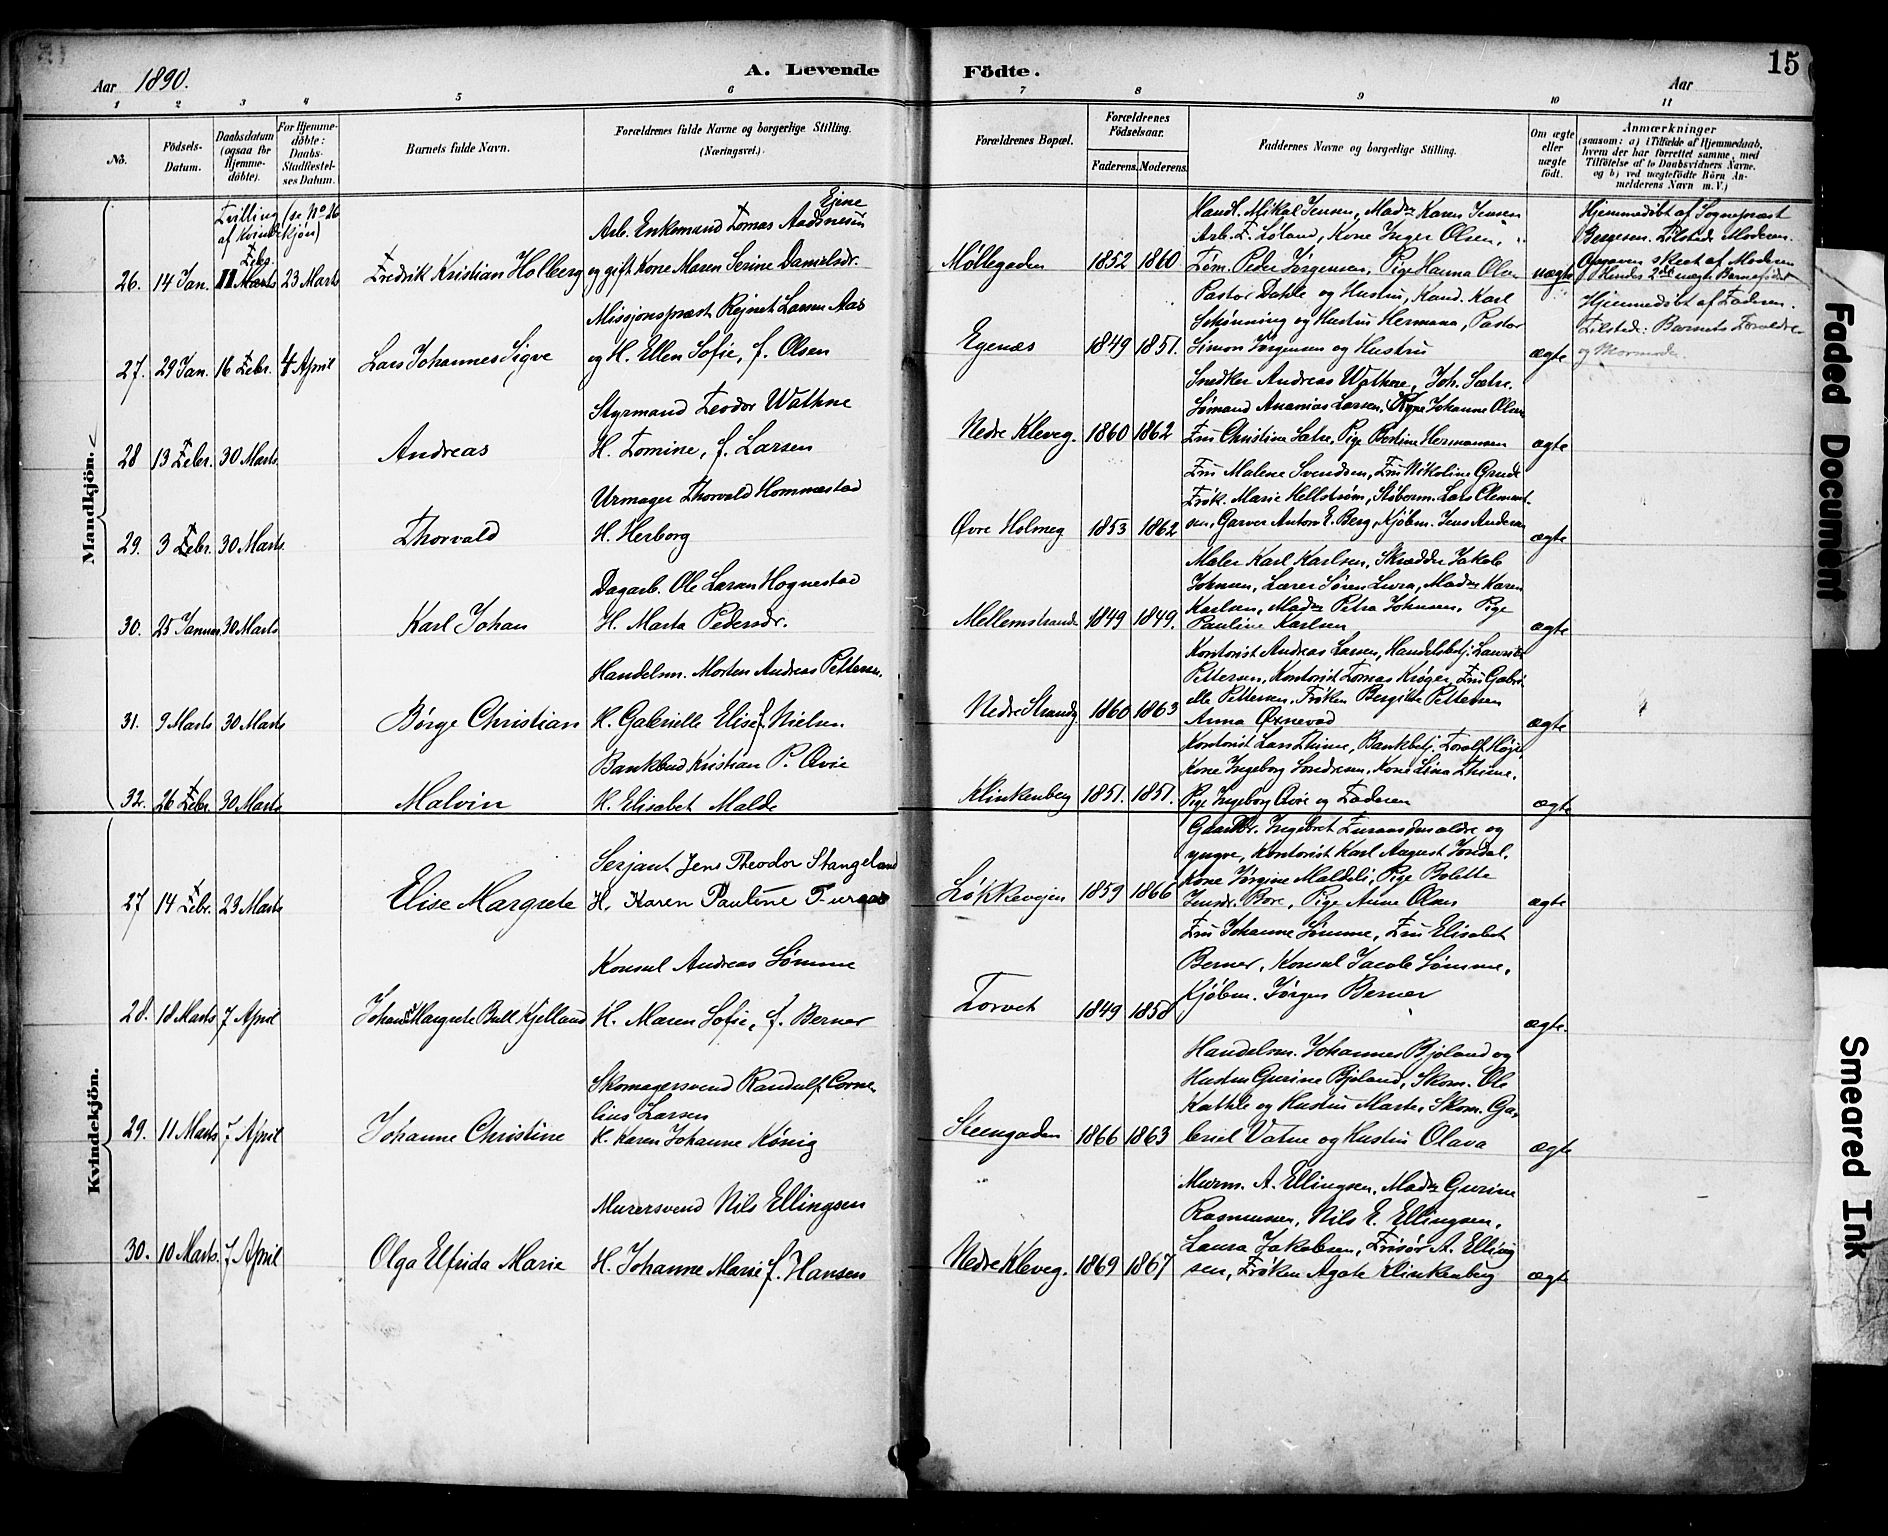 Aar 1890.
A. Levende Födte.
Aar
15
1 2 3 4 5 6 7 8 9 10 11
No.
Födsels-Datum.
Daabsdatum (ogsaa for Hjemme-döbte).
For Hjemme-döbte: Daabs-Stadfæstel-ses Datum.
Barnets fulde Navn.
Forældrenes fulde Navne og borgerlige Stilling. (Næringsvei).
Forældrenes Bopæl.
Forældrenes Födselsaar.
Faderens. Moderens.
Faddernes Navne og borgerlige Stilling.
Om ægte eller uægte födt.
Anmærkninger
(saasom: a) i Tilfælde af Hjemmedaab, hvem der har forrettet samme, med Tilföielse af to Daabsvidners Navne, og b) ved uægtefödte Börn An-melderens Navn m. V.)
Mandkjön.
Tvilling (se No 26
af Kvindekjøn)
Febr.
26. 14 Jan. 11 Marts 23 Marts Fredrik Kristian Holberg
Ejene
Arb. Enkemand Tomas Aadnesen
og gift Kone Maren Serine Danielsdr.
Møllegaden 1852 1860
Handl. Mikal Jensen, Madm Karen Jensen
Arb. T. Løland, Kone Inger Olsen,
Tøm. Peder Jørgensen, Pige Hanna Olsen
uægte
Hjemmedøbt af Sognepræst
Bergesen. Tilstede Moderen.
Opgaven skeet af Moderen
Hendes 2det uægte Barnefødsel
27. 29 Jan. 16 Febr. 4 April Lars Johannes Sigve
Missjonspræst Rejnert Larsen Aas
og H. Ellen Sofie, f. Olsen
Egenæs 1849 1851.
Pastor Dahle og Hustru, Kand. Karl
Schønning og Hustru Hermana, Pastor
Simon Jørgensen og Hustru
ægte
Hjemmedøbt af Faderen.
Tilstede: Barnets Forældre
og Mormoder.
28 13 Febr. 30 Marts Andreas
Styrmand Teodor Wathne
H. Tomine, f. Larsen
Nedre Kleveg. 1860 1862
Snedker Andreas Wathne, Joh. Sætre.
Sømand Ananias Larsen, Kone Johanne Olsen
Fru Christine Sætre, Pige Bertine Hermansen
ægte
29. 3 Febr. 30 Marts Thorvald
Urmager Thorvald Hommestad
H. Herborg
Øvre Holmeg 1853 1862
Fru Malene Svendsen, Fru Nikoline Grude
Frøk. Marie Hellstrøm, Skoborm. Lars Clement-
sen, Garver Anton E. Berg, Kjøbm. Jens Andersen
ægte
30. 25 Januar 30 Marts Karl Johan
Dagarb. Ole Larsen Hognestad
H. Marta Pedersdr.
Mellemstrandg. 1849 1849.
Maler Karl Karlsen, Skrædder Jakob
Johnsen, Lærer Søren Lura, Madm Karen
Karlsen, Madm Petra Johnsen, Pige
Pauline Karlsen
ægte
31. 9 Marts 30 Marts Børge Christian
Handelsm. Morten Andreas Pettersen.
H. Gabrielle Elise f. Nielsen
Nedre Strandg 1860 1863
Kontorist Andreas Larsen, Handelsbetj. Laurits
Pettersen, Kontorist Tomas Krøger, Fru Gabri-
elle Pettersen, Frøken Bergitte Pettersen
Anna Øxnevad
ægte
32. 26 Febr. 30 Marts Malvin
Bankbud Kristian P. Qvie
H. Elisabet Malde
Klinkenberg 1851. 1851.
Kontorist Lars Thime, Bankbetj. Torolf Høje,
Kone Ingeborg Sondresen, Kone Lina Thime,
Pige Ingeborg Qvie og Faderen
ægte
Kvindekjön.
27 14 Febr. 23 Marts Elise Margrete
Serjant Jens Theodor Stangeland
H. Karen Pauline Furaas
Løkkevejen 1859 1866
Gaardbr. Ingebret Furaas den ældre og
yngre, Kontorist Karl August Jondal,
Kone Jørgine Maldeli, Pige Bolette
Jensdr. Bore, Pige Anne Olsen
ægte
28. 18 Marts 7 April Johanne Margrete Bull Kjelland
Konsul Andreas Sømme
H. Maren Sofie, f. Berner
Torvet 1849 1858
Fru Johanne Sømme, Fru Elisabet
Berner, Konsul Jacob Sømme,
Kjøbm. Jørgen Berner
ægte.
29. 11 Marts 7 April Johanne Christine
Skomagersvend Randulf Corne-
lius Larsen
H. Karen Johanne König
Steengaden 1866 1863
Handelsm. Johannes Bjoland og
Hustru Gurine Bjoland, Skom. Ole
Kathle og Hustru Marte, Skom. Ga-
briel Vatne og Hustru Olava
ægte
30. 10 Marts. 7 April Olga Elfrida Marie
Murersvend Nils Ellingsen
H. Johanne Marie f. Hansen
Nedre Kleveg. 1869 1867
Murm. A. Ellingsen, Madm Gurine
Rasmussen, Nils E. Ellingsen,
Laura Jakobsen, Frisør A. Elling
sen, Frøken Agate Klinkenberg
ægte
Faded Document
Smeared Ink